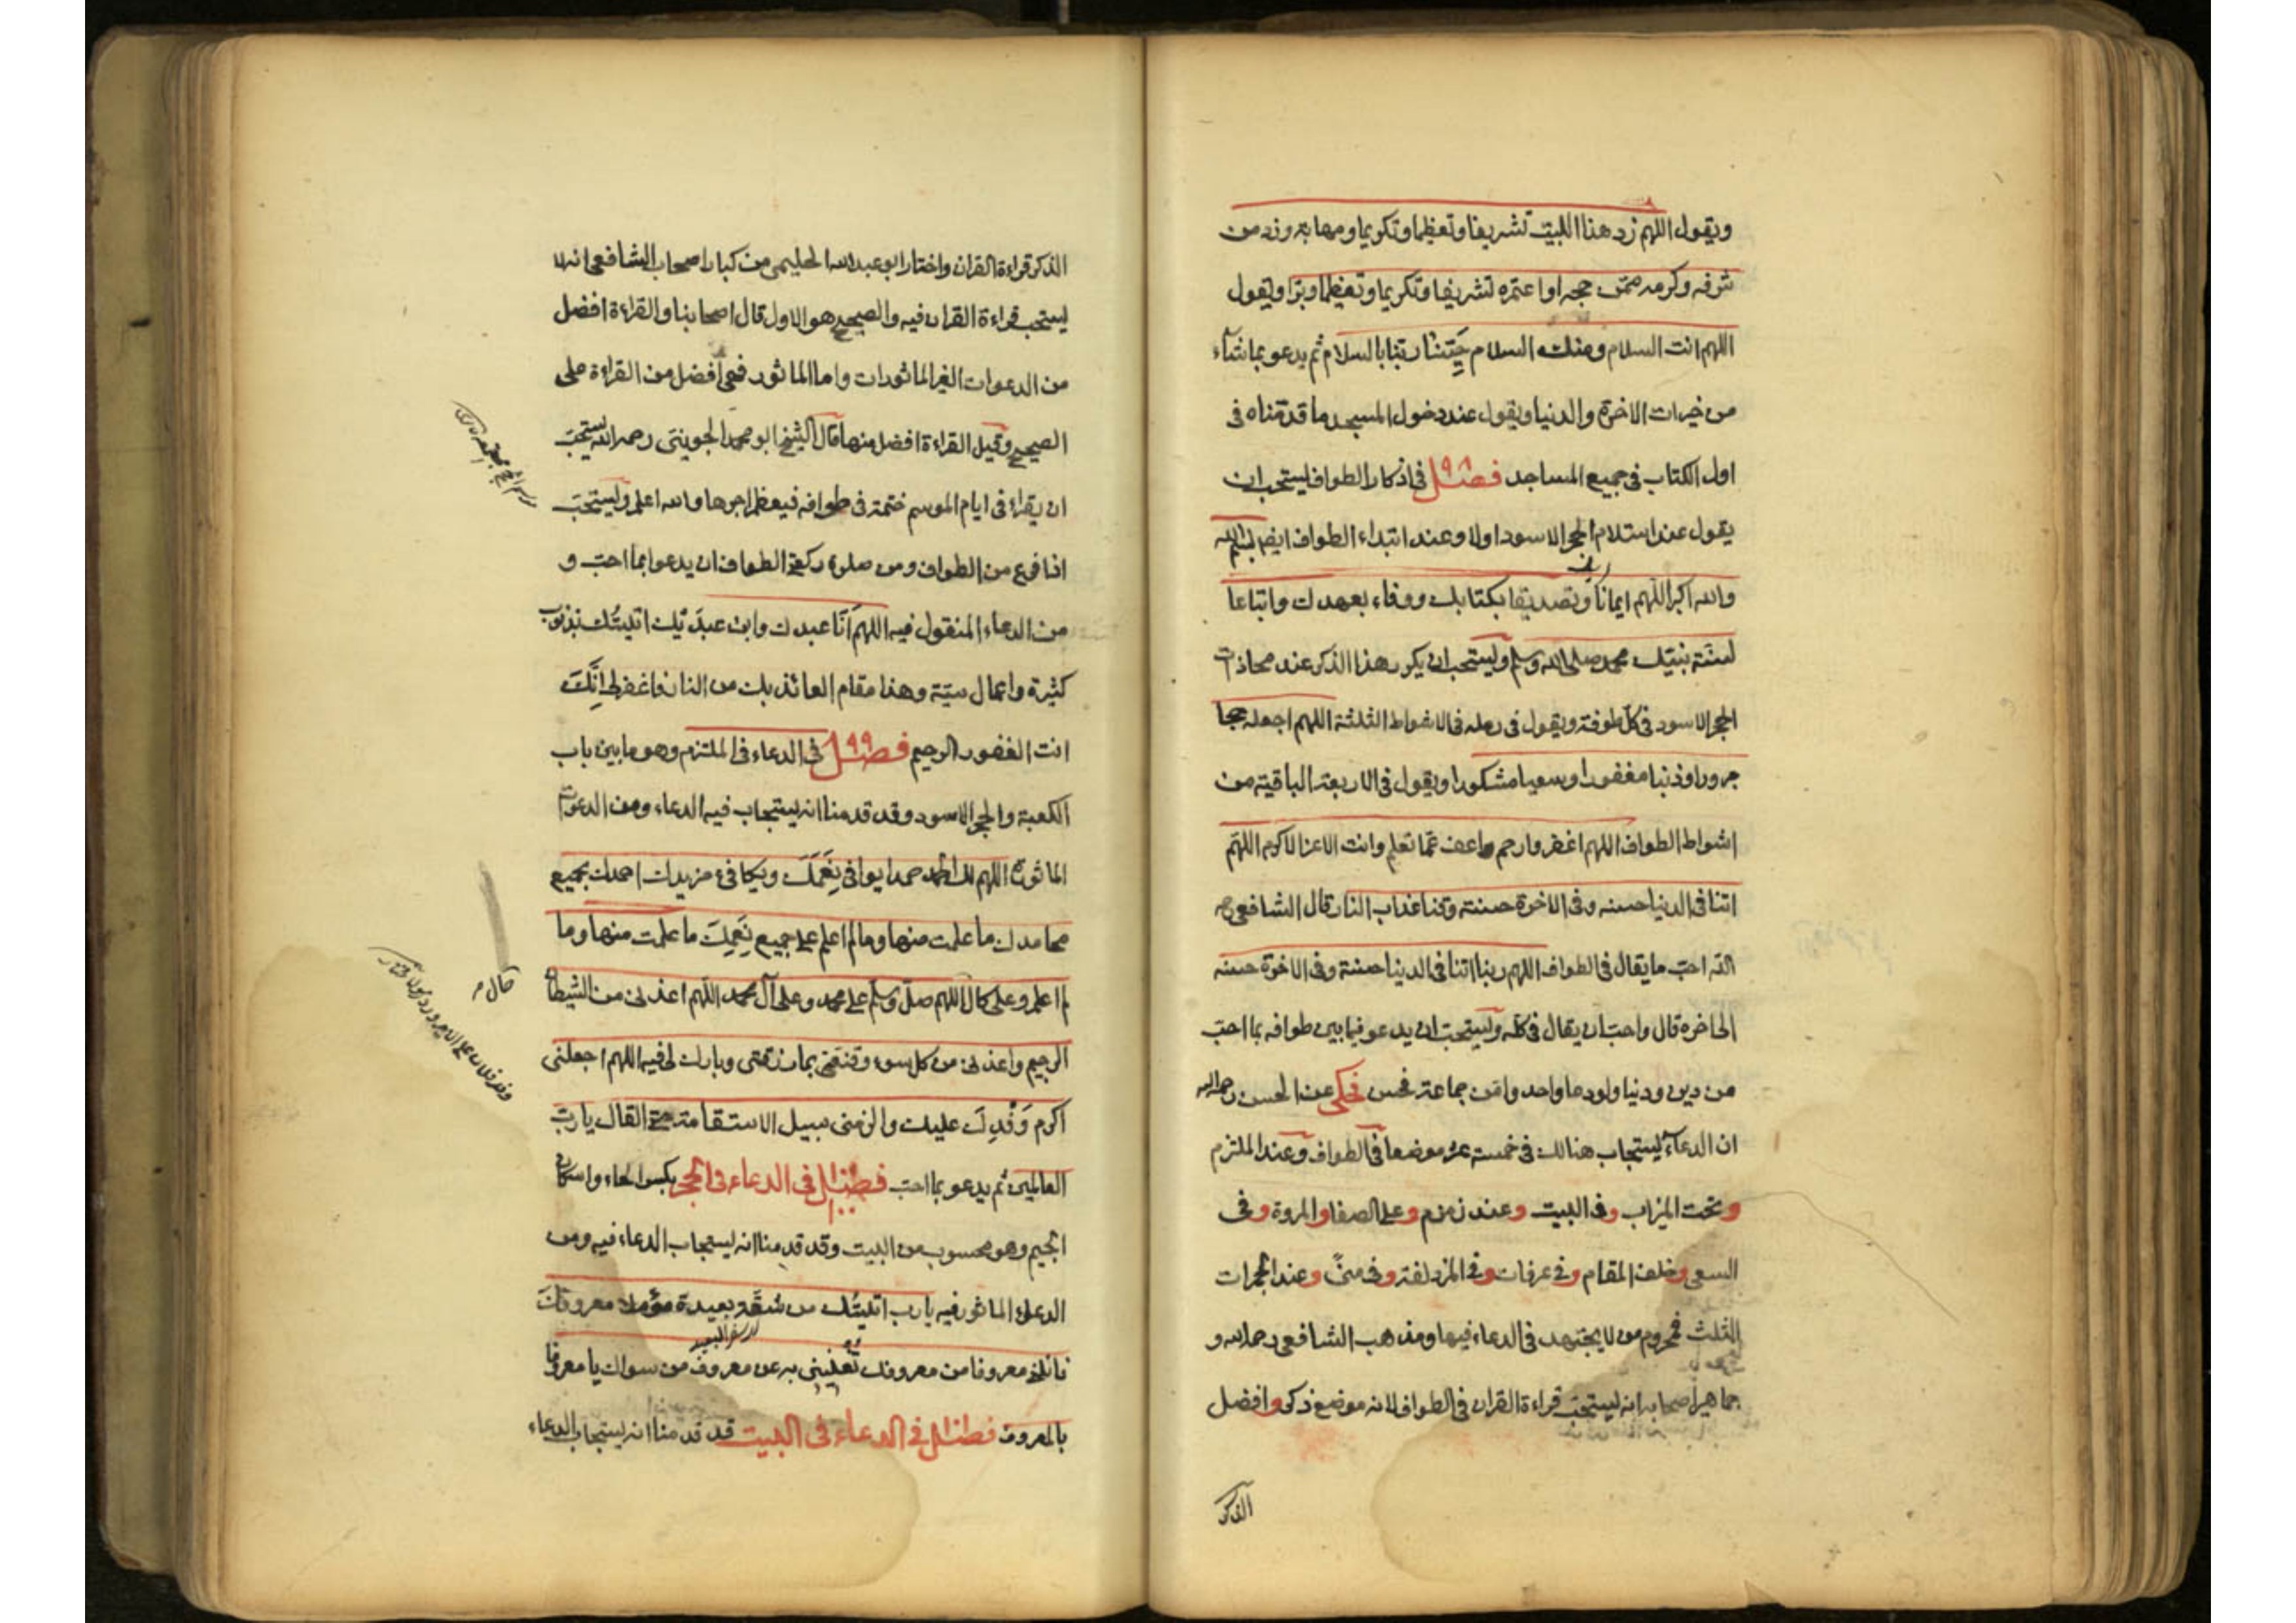 ويقول اللهم زد هذا البيت تشريفا وتعظيما وتكريما ومهابة وزد من
شرفه وكرمه ممن حجه او اعتمره تشريفا وتكريما وتعظيما وبرا ويقول
اللهم انت السلام ومنك السلام حَيِّنا ربنا بالسلام ثم يدعو بما شاء
من خيرات الاخرة والدنيا ويقول عند دخول المسجد ما قدمناه في
اول الكتاب في جميع المساجد فصل ٩٨ في اذكار الطواف يستحب ان
يقول عند استلام الحجر الاسود اولا وعند ابتداء الطواف ايضا بسم الله
والله اكبر اللهم ايمانا بك وتصديقا بكتابك ووفاء بعهدك واتباعا
لسنة نبيك محمد صلى الله وسلم ويستحب ان يكرر هذا الذكر عند محاذات
الحجر الاسود في كل طوفة ويقول في رمله في الاشواط الثلثة اللهم اجعله حجا
مبرورا وذنبا مغفورا وسعيا مشكورا ويقول في الاربعة الباقية من
اشواط الطواف اللهم اغفر وارحم واعف عما تعلم وانت الاعز الاكرم اللهم
اتنا في الدنيا حسنه وفي الاخرة حسنة وقنا عذاب النار قال الشافعي رحمه
الله احب ما يقال في الطواف اللهم ربنا اتنا في الدنيا حسنة وفي الاخرة حسنه
الى اخره قال واحب ان يقال في كله ويستحب ان يدعو فيما بين طوافه بما احب
من دين ودنيا ولو دعا واحد وامن جماعة فحسن فحكي عن الحسن رحمه الله
ان الدعاء يستجاب هنالك في خمسة عشر موضعا في الطواف وعند الملتزم
وتحت الميزاب وفي البيت وعند زمزم وعلى الصفا والمروة وفي
السعي وخلف المقام وفي عرفات وفي المزدلفة وفي منى وعند الجمرات
الثلث فمحروم من لا يجتهد في الدعاء فيها ومذهب الشافعي رحمه الله و
جماهير اصحابه انه يستحب قراءة القران في الطواف لانه موضع ذكر وافضل
الذكر
الذكر قراءة القران واختار ابو عبد الله الحليمي من كبار اصحاب الشافعي انه لا
يستحب قراءة القران فيه والصحيح هو الاول قال اصحابنا والقراءة افضل
من الدعوات الغير الماثورات واما الماثور فهي افضل من القراءة على
الصحيح وقيل القراءة افضل منها قال الشيخ ابو محمد الجويني رحمه الله يستحب
ان يقراء في ايام الموسم ختمة في طوافه فيعظم اجرها والله اعلم ويستحب
اذا فرغ من الطواف ومن صلوة ركعتي الطواف ان يدعو بما احب و
من الدعاء المنقول فيه اللهم انا عبدك وابن عبديك اتيتك بذنوب
كثيرة واعمال سيئة وهذا مقام العائذ بك من النار فاغفر لي انك
انت الغفور الرحيم فصل ٩٩ في الدعاء في الملتزم وهو ما بين باب
الكعبة والحجر الاسود وقد قدمنا انه يستجاب فيه الدعاء ومن الدعوات
الماثورة اللهم لك الحمد حمدا يوافي نِعَمَكَ ويكافيء مزيدك احمدك بجميع
محامدك ما علمت منها وما لم اعلم على جميع نِعَمِكَ ما علمت منها وما
لم اعلم وعلى كل حال اللهم صل وسلم على محمد وعلى آل محمد اللهم اعذني من الشيطان
حال
الرجيم واعذني من كل سوء وقنعني بما رزقتني وبارك لي فيه اللهم اجعلني
اكرم وَفْدِكَ عليك والزمني سبيل الاستقامة حتى القاك يا رب
العالمين ثم يدعو بما احب فصل ١٠٠ في الدعاء في الحجر بكسر الحاء واسكان
الجيم وهو محسوب من البيت وقد قدمنا انه يستجاب الدعاء فيه ومن
الدعاء الماثور فيه يا رب اتيتك من شقة بعيدة مؤملا معروفك
السفر البعيد
فانلني معروفا من معروفك تغنيني به عن معروف من سواك يا معروفا
بالمعروف فصل في الدعاء في البيت قد قدمنا انه يستجاب الدعاء